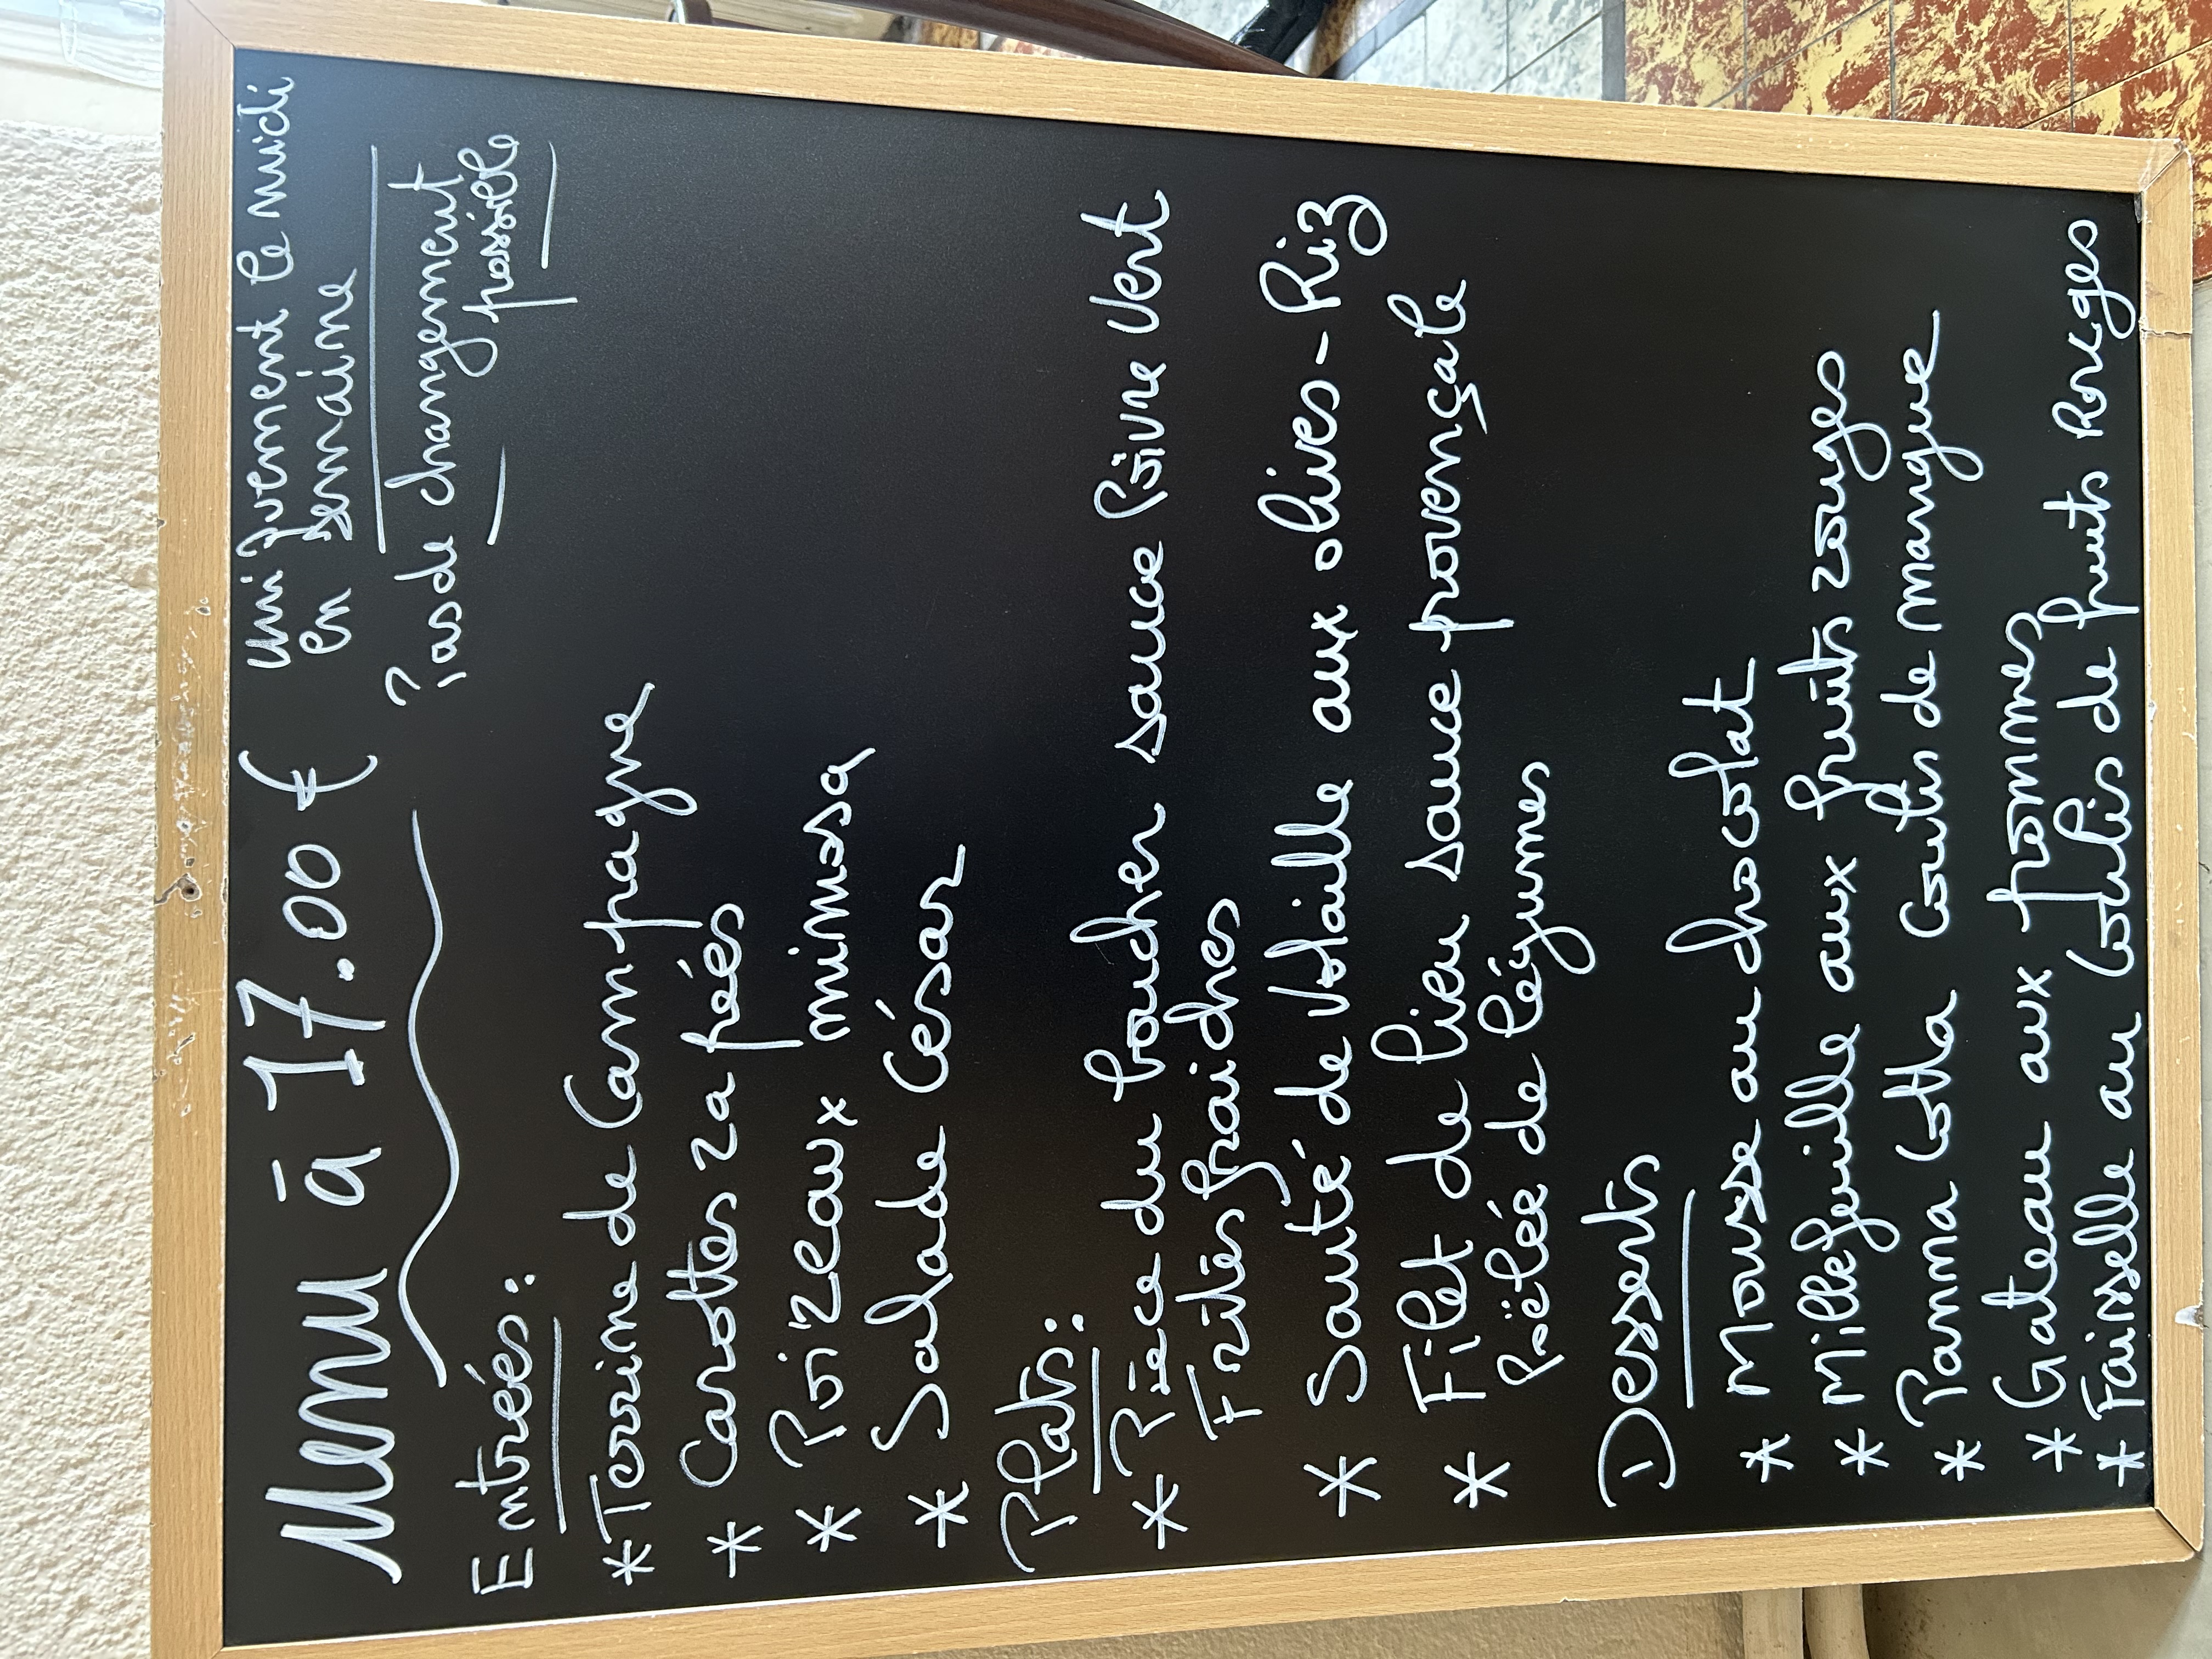 Menu à 17.00 €
uniquement le midi
en semaine
Pas de changement
possible
Entrées:
* Terrine de Campagne
* Carottes rapées
* Poireaux mimosa
* Salade César
Plats:
* Pièce du boucher sauce Poivre Vert
Frites fraiches
* Sauté de Volaille aux olives - Riz
* Filet de lieu sauce provençale
Poëlée de légumes
Desserts
* Mousse au chocolat
* Millefeuille aux fruits rouges
* Panna Cotta Coulis de mangue
* Gateau aux pommes
* Faisselle au Coulis de fruits Rouges